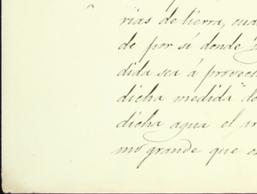 rias de tierra, cua
de por sí donde
dida sea á provech
dicha medida le
dicha agua el
mo grande que es